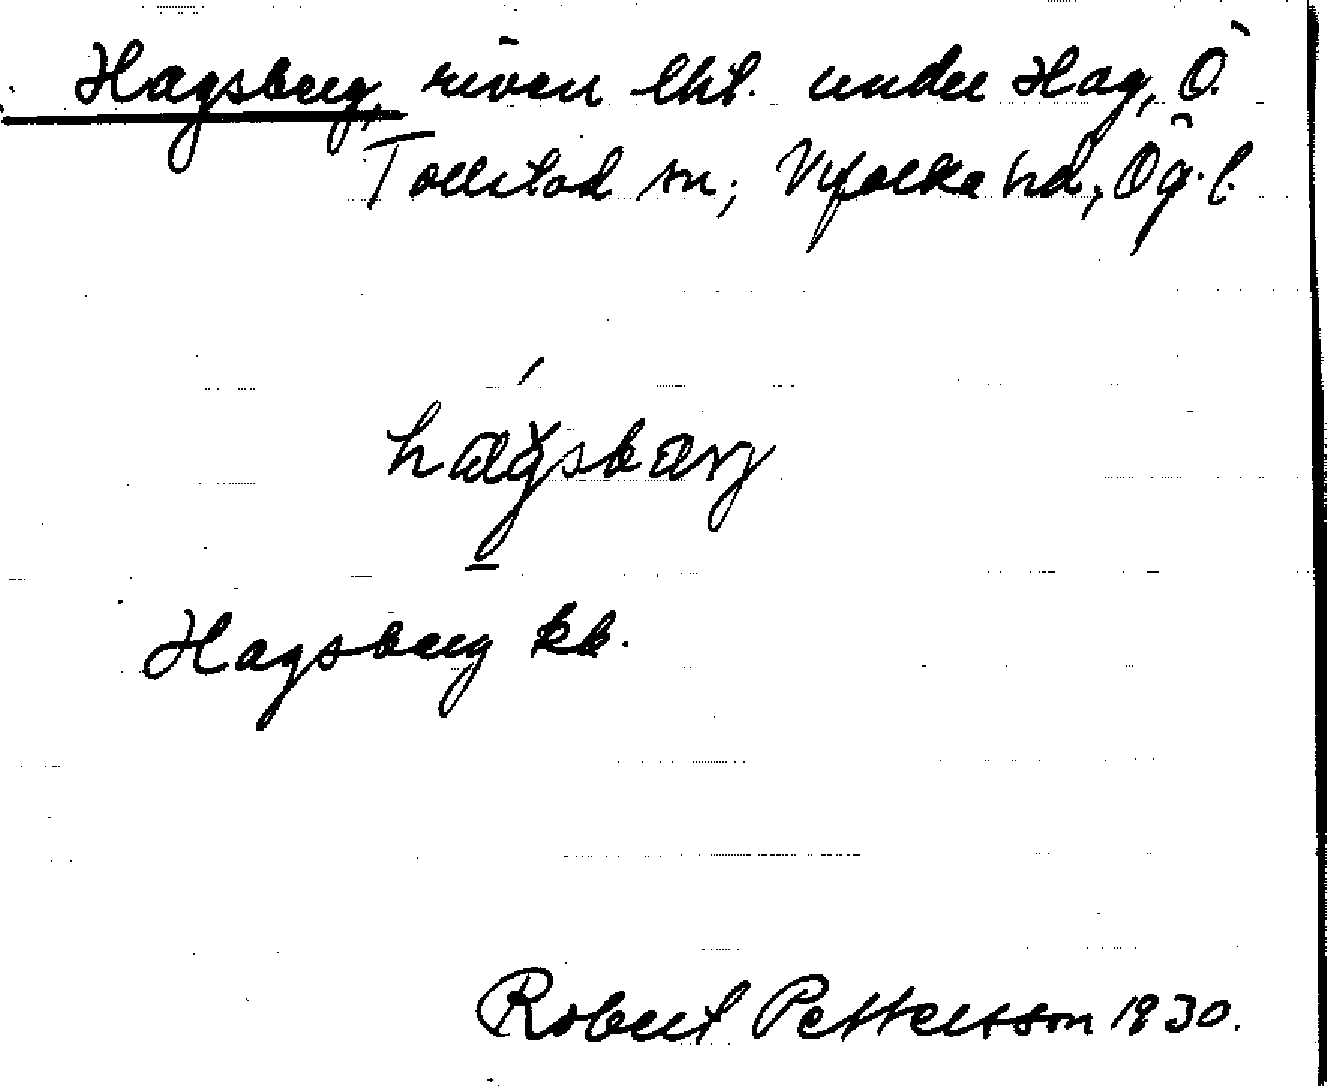 Hagsberg, riven lht. under Hag, Ö.
Tollstad sn, Vifolka hd, Ög. l.
Hagsberg kb.
Robert Pettersson 1930.